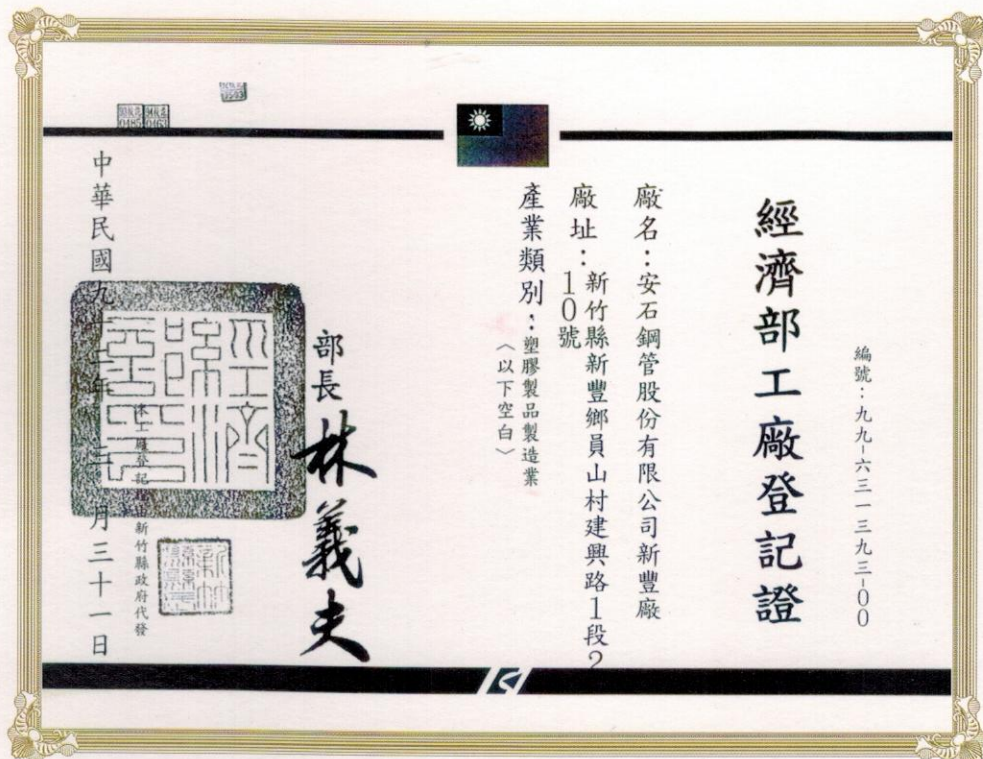 編號：九九-六三一三九三-00
經濟部工廠登記證
廠名：安石鋼管股份有限公司新豐廠
廠址：新竹縣新豐鄉員山村建興路1段2
10號
產業類別：塑膠製品製造業
〈以下空白〉
部長 林義夫
經濟部印
本工廠登記 由新竹縣政府代發
中華民國九十二年三月三十一日